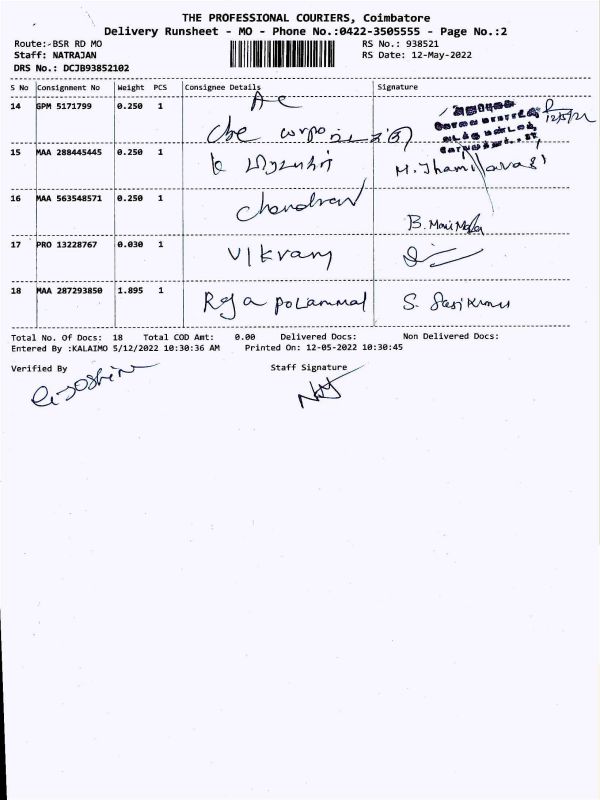 THE PROFESSIONAL COURIERS, Coimbatore
Delivery Runsheet - MO - Phone No.:0422-3505555 - Page No.:2
Route:-BSR RD MO RS No.: 938521
Staff: NATRAJAN RS Date: 12-May-2022
DRS No.: DCJB93852102
S No Consignment No Weight PCS Consignee Details Signature
14 GPM 5171799 0.250 1 AC
Cbe
12/5/22
15 MAA 288445445 0.250 1 M. Thamilarasi
16 MAA 563548571 0.250 1 Chandran
17 PRO 13228767 0.030 1 Vikram
18 MAA 287293850 1.895 1 Raja S. Sasikumar
Total No. Of Docs: 18 Total COD Amt: 0.00 Delivered Docs: Non Delivered Docs:
Entered By :KALAIMO 5/12/2022 10:30:36 AM Printed On: 12-05-2022 10:30:45
Verified By Staff Signature